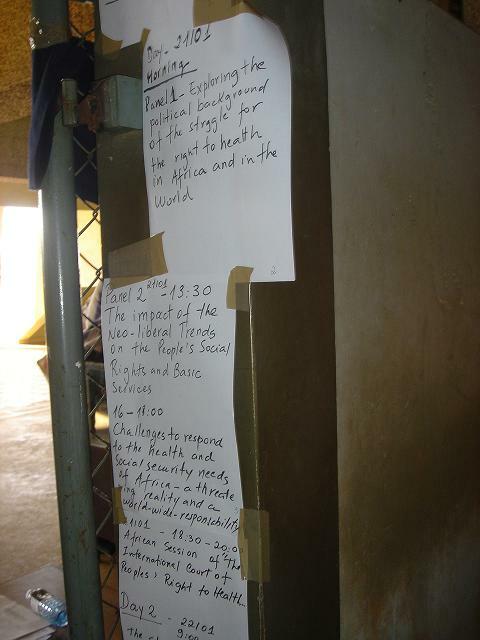 Day - 21/01
Morning
Panel 1 - Exploring the
political background
of the strggle for
the right to health
in Africa and in the
World
2
Panel 2 21/01 - 13:30
The impact of the
Neo-liberal Trends
on the People's Social
Rights and Basic
Services
16 - 18:00
Challenges to respond
to the Health and
Social security needs
of Africa - a threate
ing reality and a
world-wide-responsibility
21/01 - 18:30 - 20:0
African Session of the
International Court of
Peoples' Right to Health...
Day 2 - 22/01
9:00
the